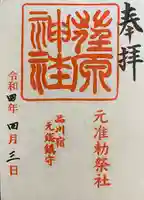 奉拝
元准勅祭社
荏原
神社
品川宿
鎮守
令和四年四月三日